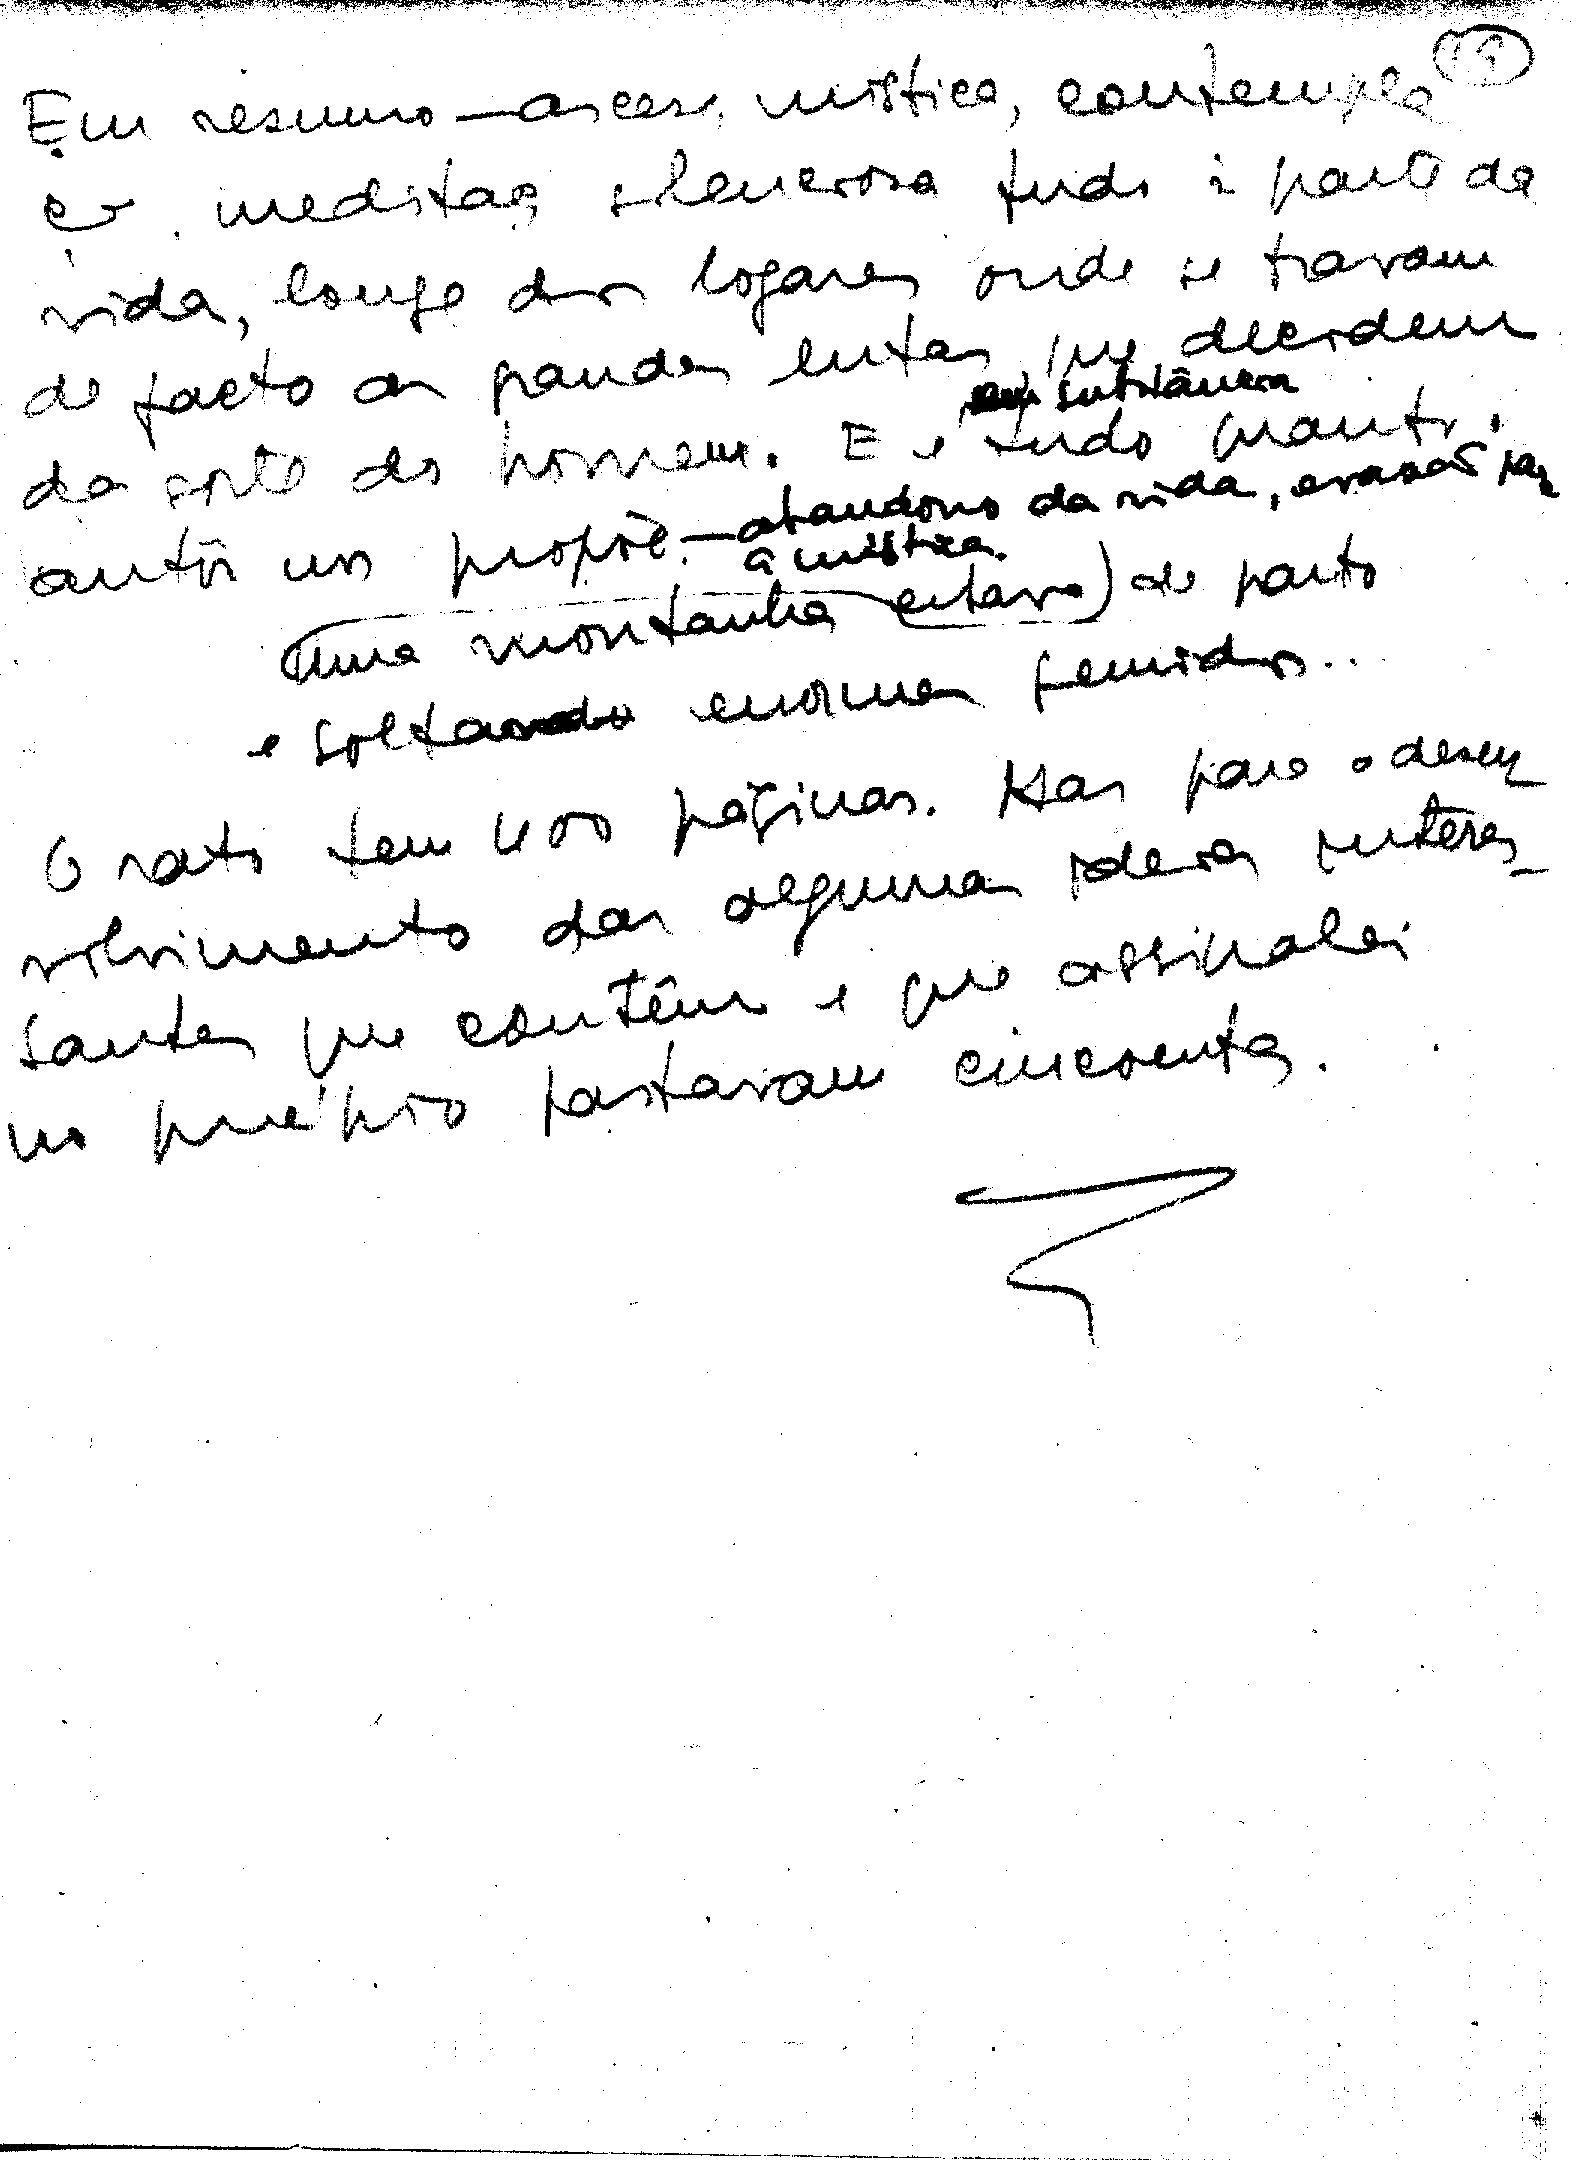 Em resumo — ascese, mística, contempla
ção, meditação silenciosa tudo à parte da
vida, longe dos logares onde se travam
de facto as grandes lutas que decidem
da sorte do homem. E é tudo quanto o
em substância
autor nos propõe. — abandono da vida, evasão para
a mística.
(Uma montanha estava) de parto
e soltando enormes gemidos...
O rato tem 400 páginas. Mas para o desen
volvimento das algumas ideias interes-
santes que contêm e que assinalei
no princípio bastavam cincoenta.